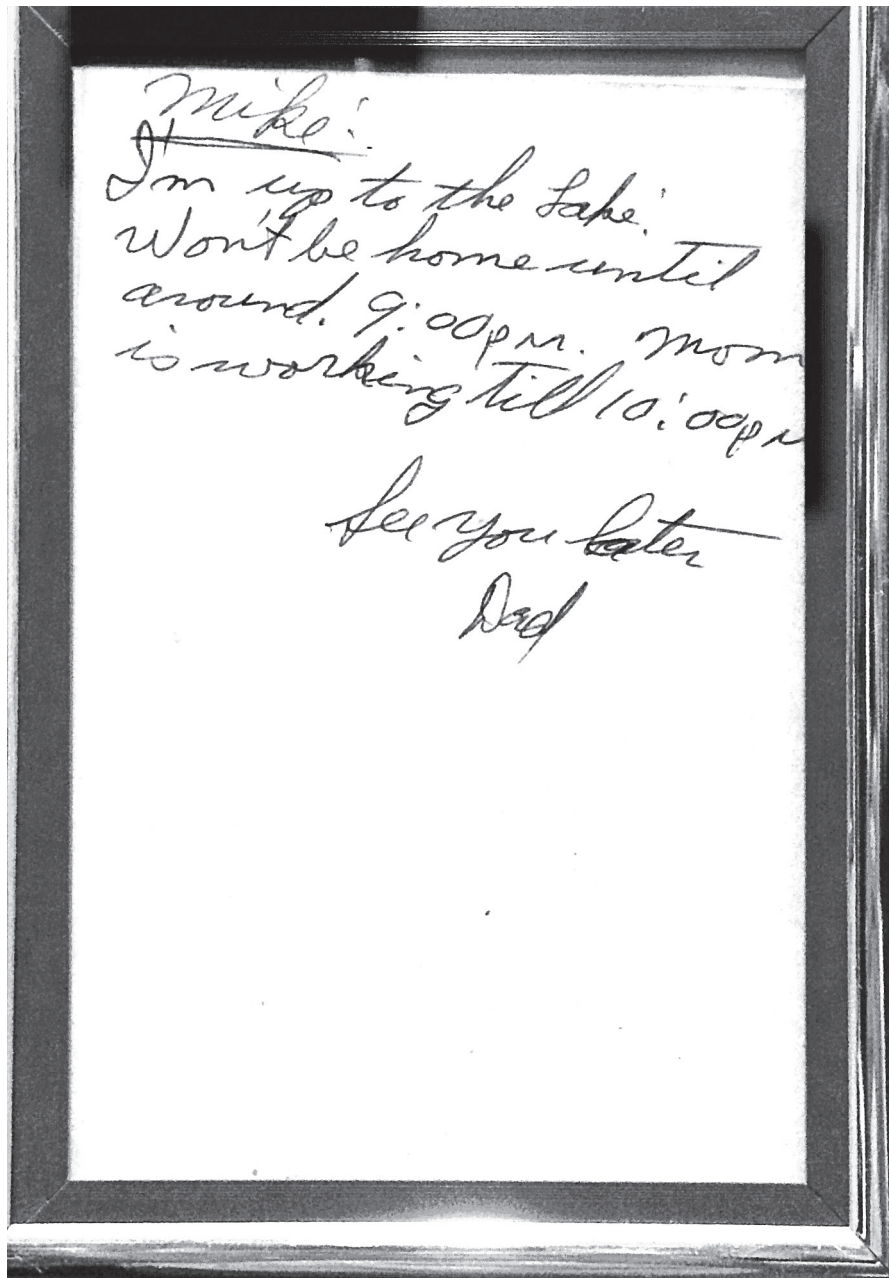 Mike:
I'm up to the Lake.
Won't be home until
around. 9:00pm. Mom
is working till 10:00pm
See you Later
Dad